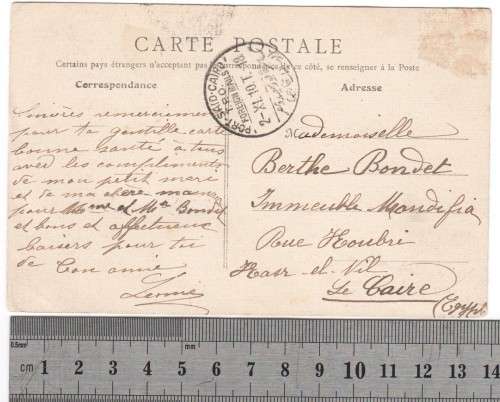 CARTE POSTALE
Certains pays étrangers n'acceptant pas de correspondance de ce côté, se renseigner à la Poste
Correspondance
Adresse
PORT-SAID-CAIRO
2-XI-10
Sincères remerciements
pour ta gentille carte
bonne santé à tous
avec les compliments
de mon petit mari
et de ma chère maman
pour Mme et Mr Bondet
et bons et affectueux
baisers pour toi
de ton amie
Leonie
Mademoiselle
Berthe Bondet
Immeuble Mandifia
Rue Koubri
Kasr-el-Nil
Le Caire
(Egypte
0.5mm
cm 1 2 3 4 5 6 7 8 9 10 11 12 13 14